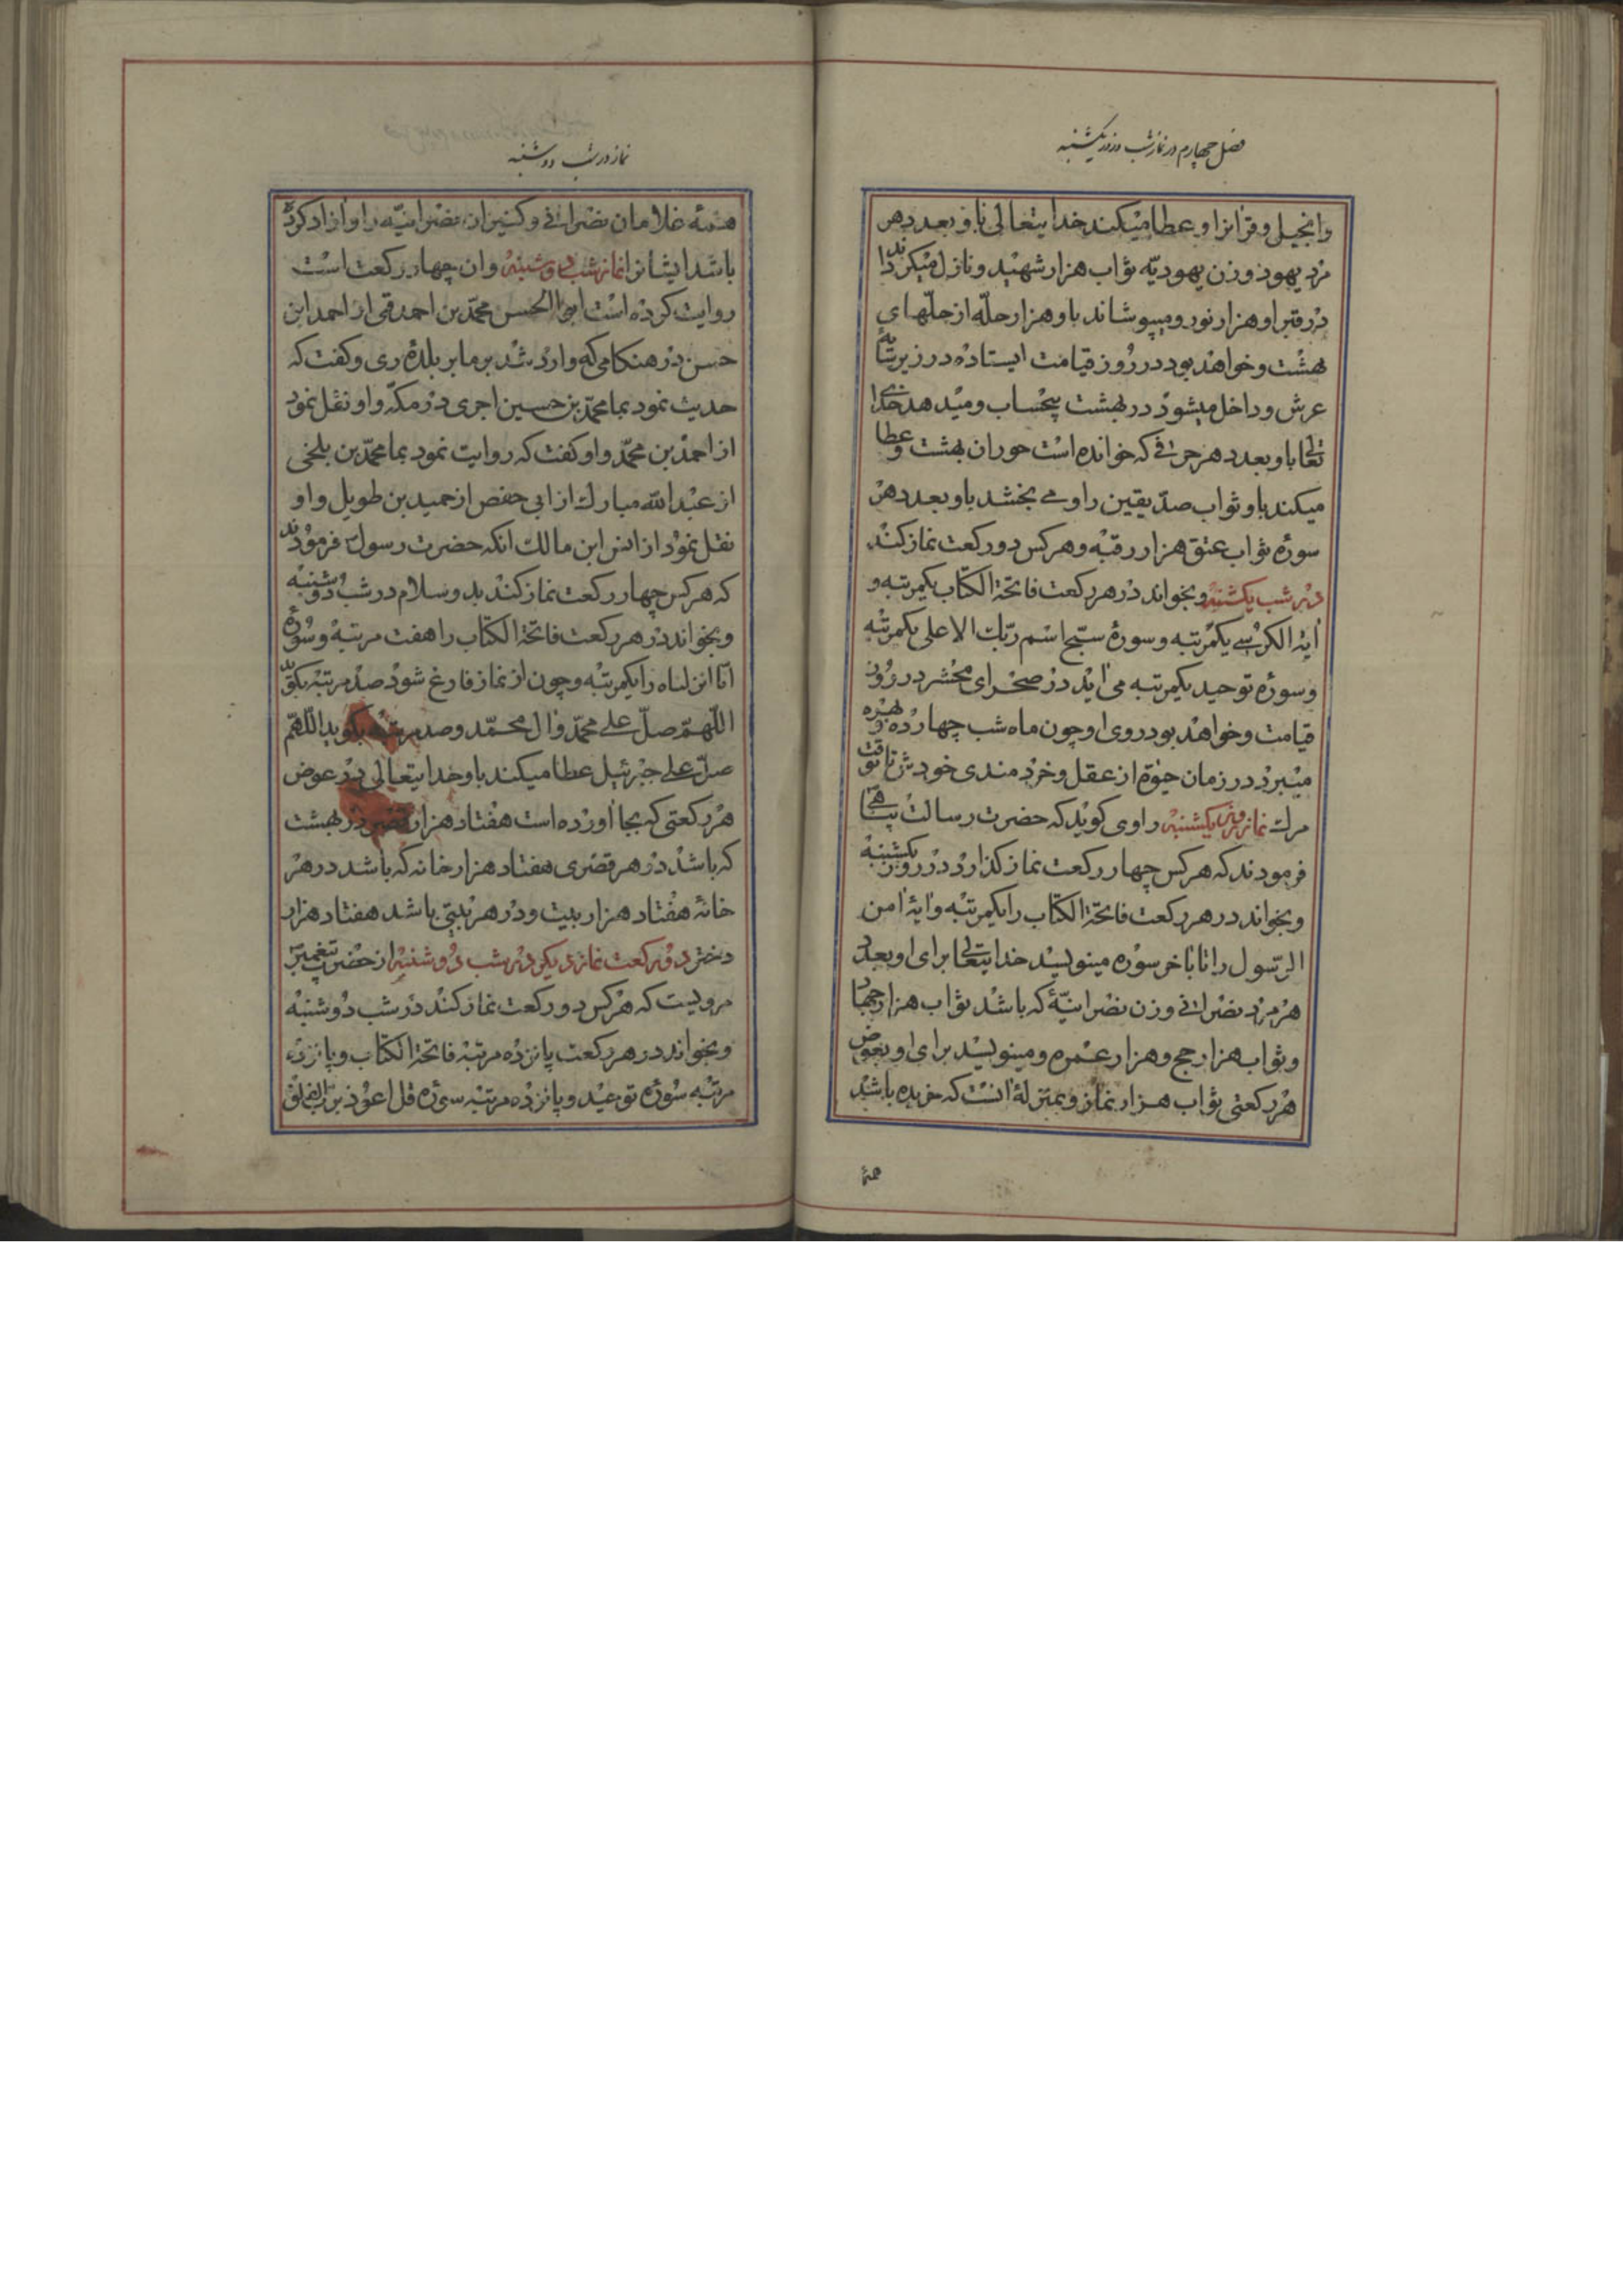 فصل چهارم در نماز شب و روز یکشنبه
وانجیل و قرانرا و عطا میکند خدایتعالی باو بعدد هر
مرد یهود و زن یهودیّه ثواب هزار شهید و نازل میکرداند
در قبر او هزار نور و میپوشاند باو هزار حلّه از حلّهای
بهشت و خواهد بود در روز قیامت ایستاده در زیر سایهٔ
عرش و داخل میشود در بهشت بیحساب و میدهد خدای
تعالی باو بعدد هر حرفی که خوانده است حوران بهشت و عطا
میکند باو ثواب صدّیقین را و می بخشد باو بعدد هر
سوره ثواب عتق هزار رقبه و هر کس دو رکعت نماز کند
در شب یکشنبه و بخواند در هر رکعت فاتحة الکتاب یکمرتبه و
ایة الکرسی یکمرتبه و سورهٔ سبّح اسم ربّك الاعلی یکمرتبه
و سورهٔ توحید یکمرتبه می اید در صحرای محشر در روز
قیامت و خواهد بود روی او چون ماه شب چهارده و بهره
میبرد در زمان حیوة از عقل و خردمندی خودش تا وقت
مرك نماز روز یکشنبه راوی کوید که حضرت رسالت پناهی
فرمودند که هر کس چهار رکعت نماز کذارد در روز یکشنبه
و بخواند در هر رکعت فاتحة الکتاب را یکمرتبه و ایهٔ امن
الرّسول را تا باخر سوره مینویسد خدایتعالی برای او بعدد
هر مرد نصرانی و زن نصرانیّهٔ که باشد ثواب هزار جهاد
و ثواب هزار حج و هزار عمره و مینویسد برای او بعوض
هر رکعتی ثواب هزار نماز و بمنزلهٔ انست که خریده باشد
همهٔ
نماز در شب دوشنبه
همهٔ غلامان نصرانی و کنیزان نصرانیّه را و ازاد کرده
باشد ایشانرا نماز شب دوشنبه و ان چهار رکعت است
روایت کرده است ابی الحسن محمّد بن احمد قمی از احمد ابن
حسن در هنکامی که وارد شد بر ما بر بلدهٔ ری و کفت که
حدیث نمود بما محمّد بن حسین اجری در مکّه و او نقل نمود
از احمد بن محمّد و او کفت که روایت نمود بما محمّد بن بلخی
از عبد الله مبارك از ابی حفص از حمید بن طویل و او
نقل نمود از انس ابن مالك انکه حضرت رسول فرمودند
که هر کس چهار رکعت نماز کند بدو سلام در شب دوشنبه
و بخواند در هر رکعت فاتحة الکتاب را هفت مرتبه و سورهٔ
انّا انزلناه را یکمرتبه و چون از نماز فارغ شود صد مرتبه بکوید
اللّهمّ صلّ علی محمّد و ال محمّد و صد مرتبه بکوید اللّهمّ
صلّ علی جبرئیل عطا میکند باو خدایتعالی در عوض
هر رکعتی که بجا اورده است هفتاد هزار قصر در بهشت
که باشد در هر قصری هفتاد هزار خانه که باشد در هر
خانهٔ هفتاد هزار بیت و در هر بیتی باشد هفتاد هزار
دختر دو رکعت نماز دیکر در شب دوشنبه از حضرت پیغمبر
مرویست که هر کس دو رکعت نماز کند در شب دوشنبه
و بخواند در هر رکعت پانزده مرتبه فاتحة الکتاب و پانزده
مرتبه سورهٔ توحید و پانزده مرتبه سورهٔ قل اعوذ بربّ الفلق